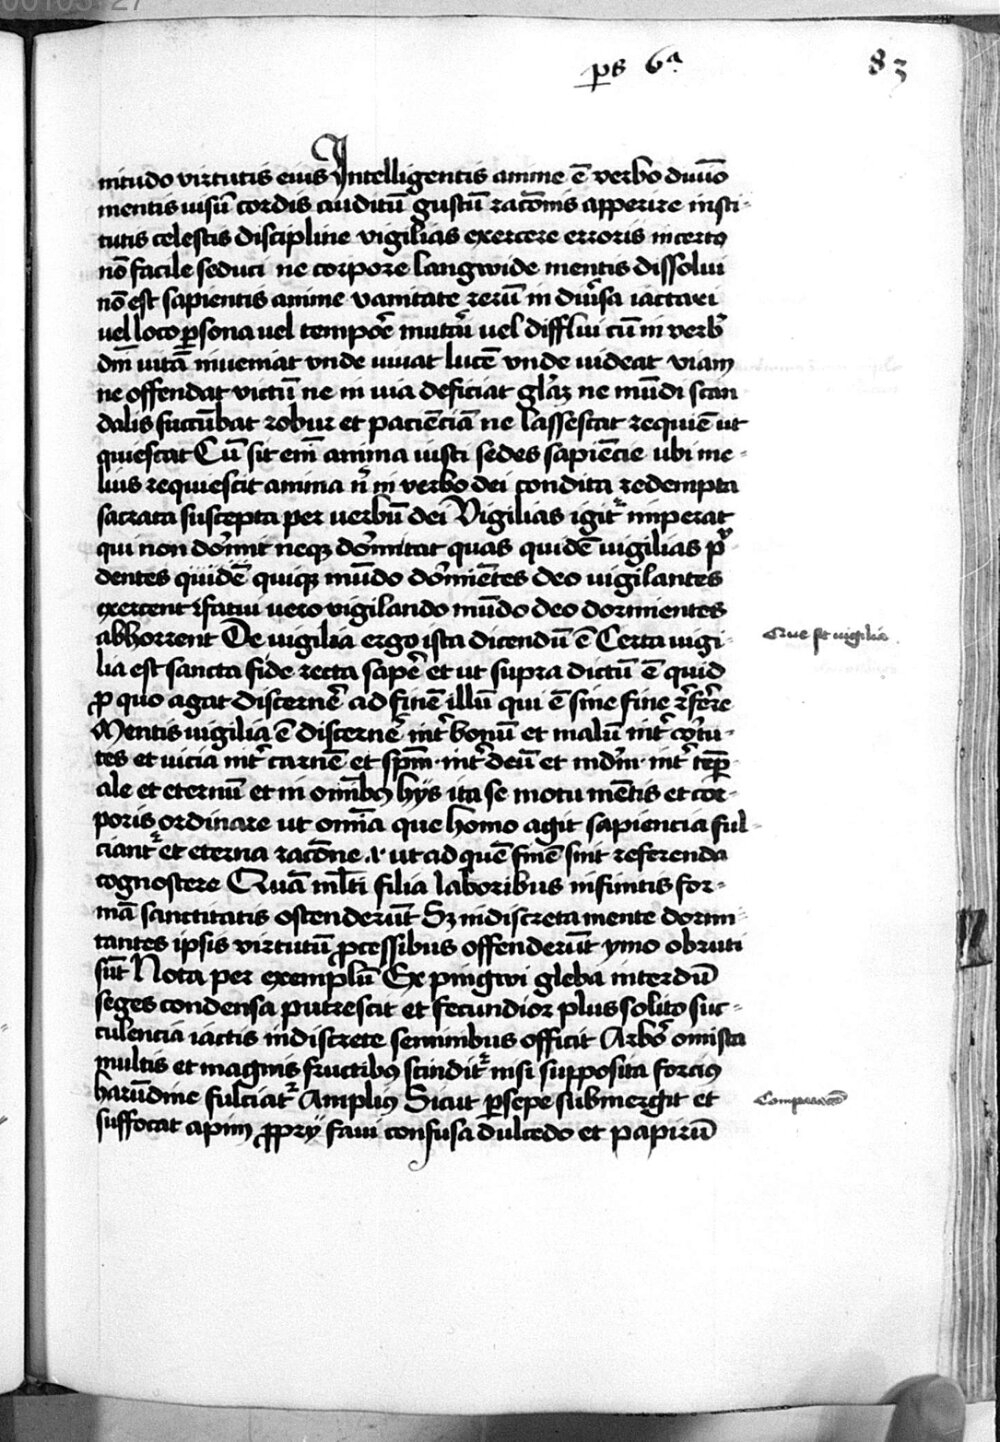 ps 6ᵃ
83
nitudo virtutis eius Intelligentis anime ē verbo diuīo
mentis uisū cordis auditū gustū racōnis apperire insti-
tutis celestis discipline vigilias exercere erroris incerto
nō facile seduci ne corpore langwide mentis dissolui
nō est sapientis anime vanitate rerū in diūsa iactari
uel loco ꝑsona uel tempoꝛe mutāi uel difflui cū in verbo
dīn uitā inueniat vnde uiuat lucē vnde uideat viam
ne offendat victū ne in uia deficiat glāꝫ ne mūdi scan
dalis succūbat robur et pacienciā ne lassescat requiē ut
quiescat Cū sit em̄ anima iusti sedes sapiēcie ubi me-
lius requiescit anima n̄ in verbo dei condita redempta
sacrata suscepta per uerbū dei Vigilias igitr imperat
qui non dormit neqꝫ dormitat quas quidē uigilias pru
dentes quidē quiqꝫ mūdo dormiētes deo uigilantes
exercent ⁊ fatui uero vigilando mūdo deo dormientes
abhorrent De uigilia ergo ista dicendū ē Certa uigi-
lia est sancta fide recta sapē et ut supra dictū ē quid
ꝓ quo agat discernē ad finē illū qui ē sine fine r̄ferre
Mentis uigilia ē discernē int̄ bonū et malū int̄ virtu-
tes et uicia int̄ carnē et sp̄m int̄ deū et mdm̄ int̄ tēp
ale et eternū et in omībꝰ hijs ita se motu mētis et cor-
poris ordinare ut omīa que homo agit sapiencia ful-
ciantr et eterna racōne ⁊ ut ad quē finē sint referenda
cognoscere Quā ml̄ti filia laboribus infinitis for-
mā sanctitatis ostenderūt Sꝫ indiscreta mente dormi-
tantes ipsis virtutū ꝓcessibus offenderūt ymo obruti
sūt Nota per exemplū Ex pingwi gleba interdū
seges condensa putrescit et fecundior plus solito suc-
culencia iactis indiscrete seminibus officit Arboꝛ omista
multis et magnis fructibꝰ scinditr nisi supposita forciꝰ
harūdine fulciatr Ampliꝰ Sicut ꝑsepe submergit et
suffocat apim ꝓprij faui confusa dulcedo et papirū
Que sit uigilia